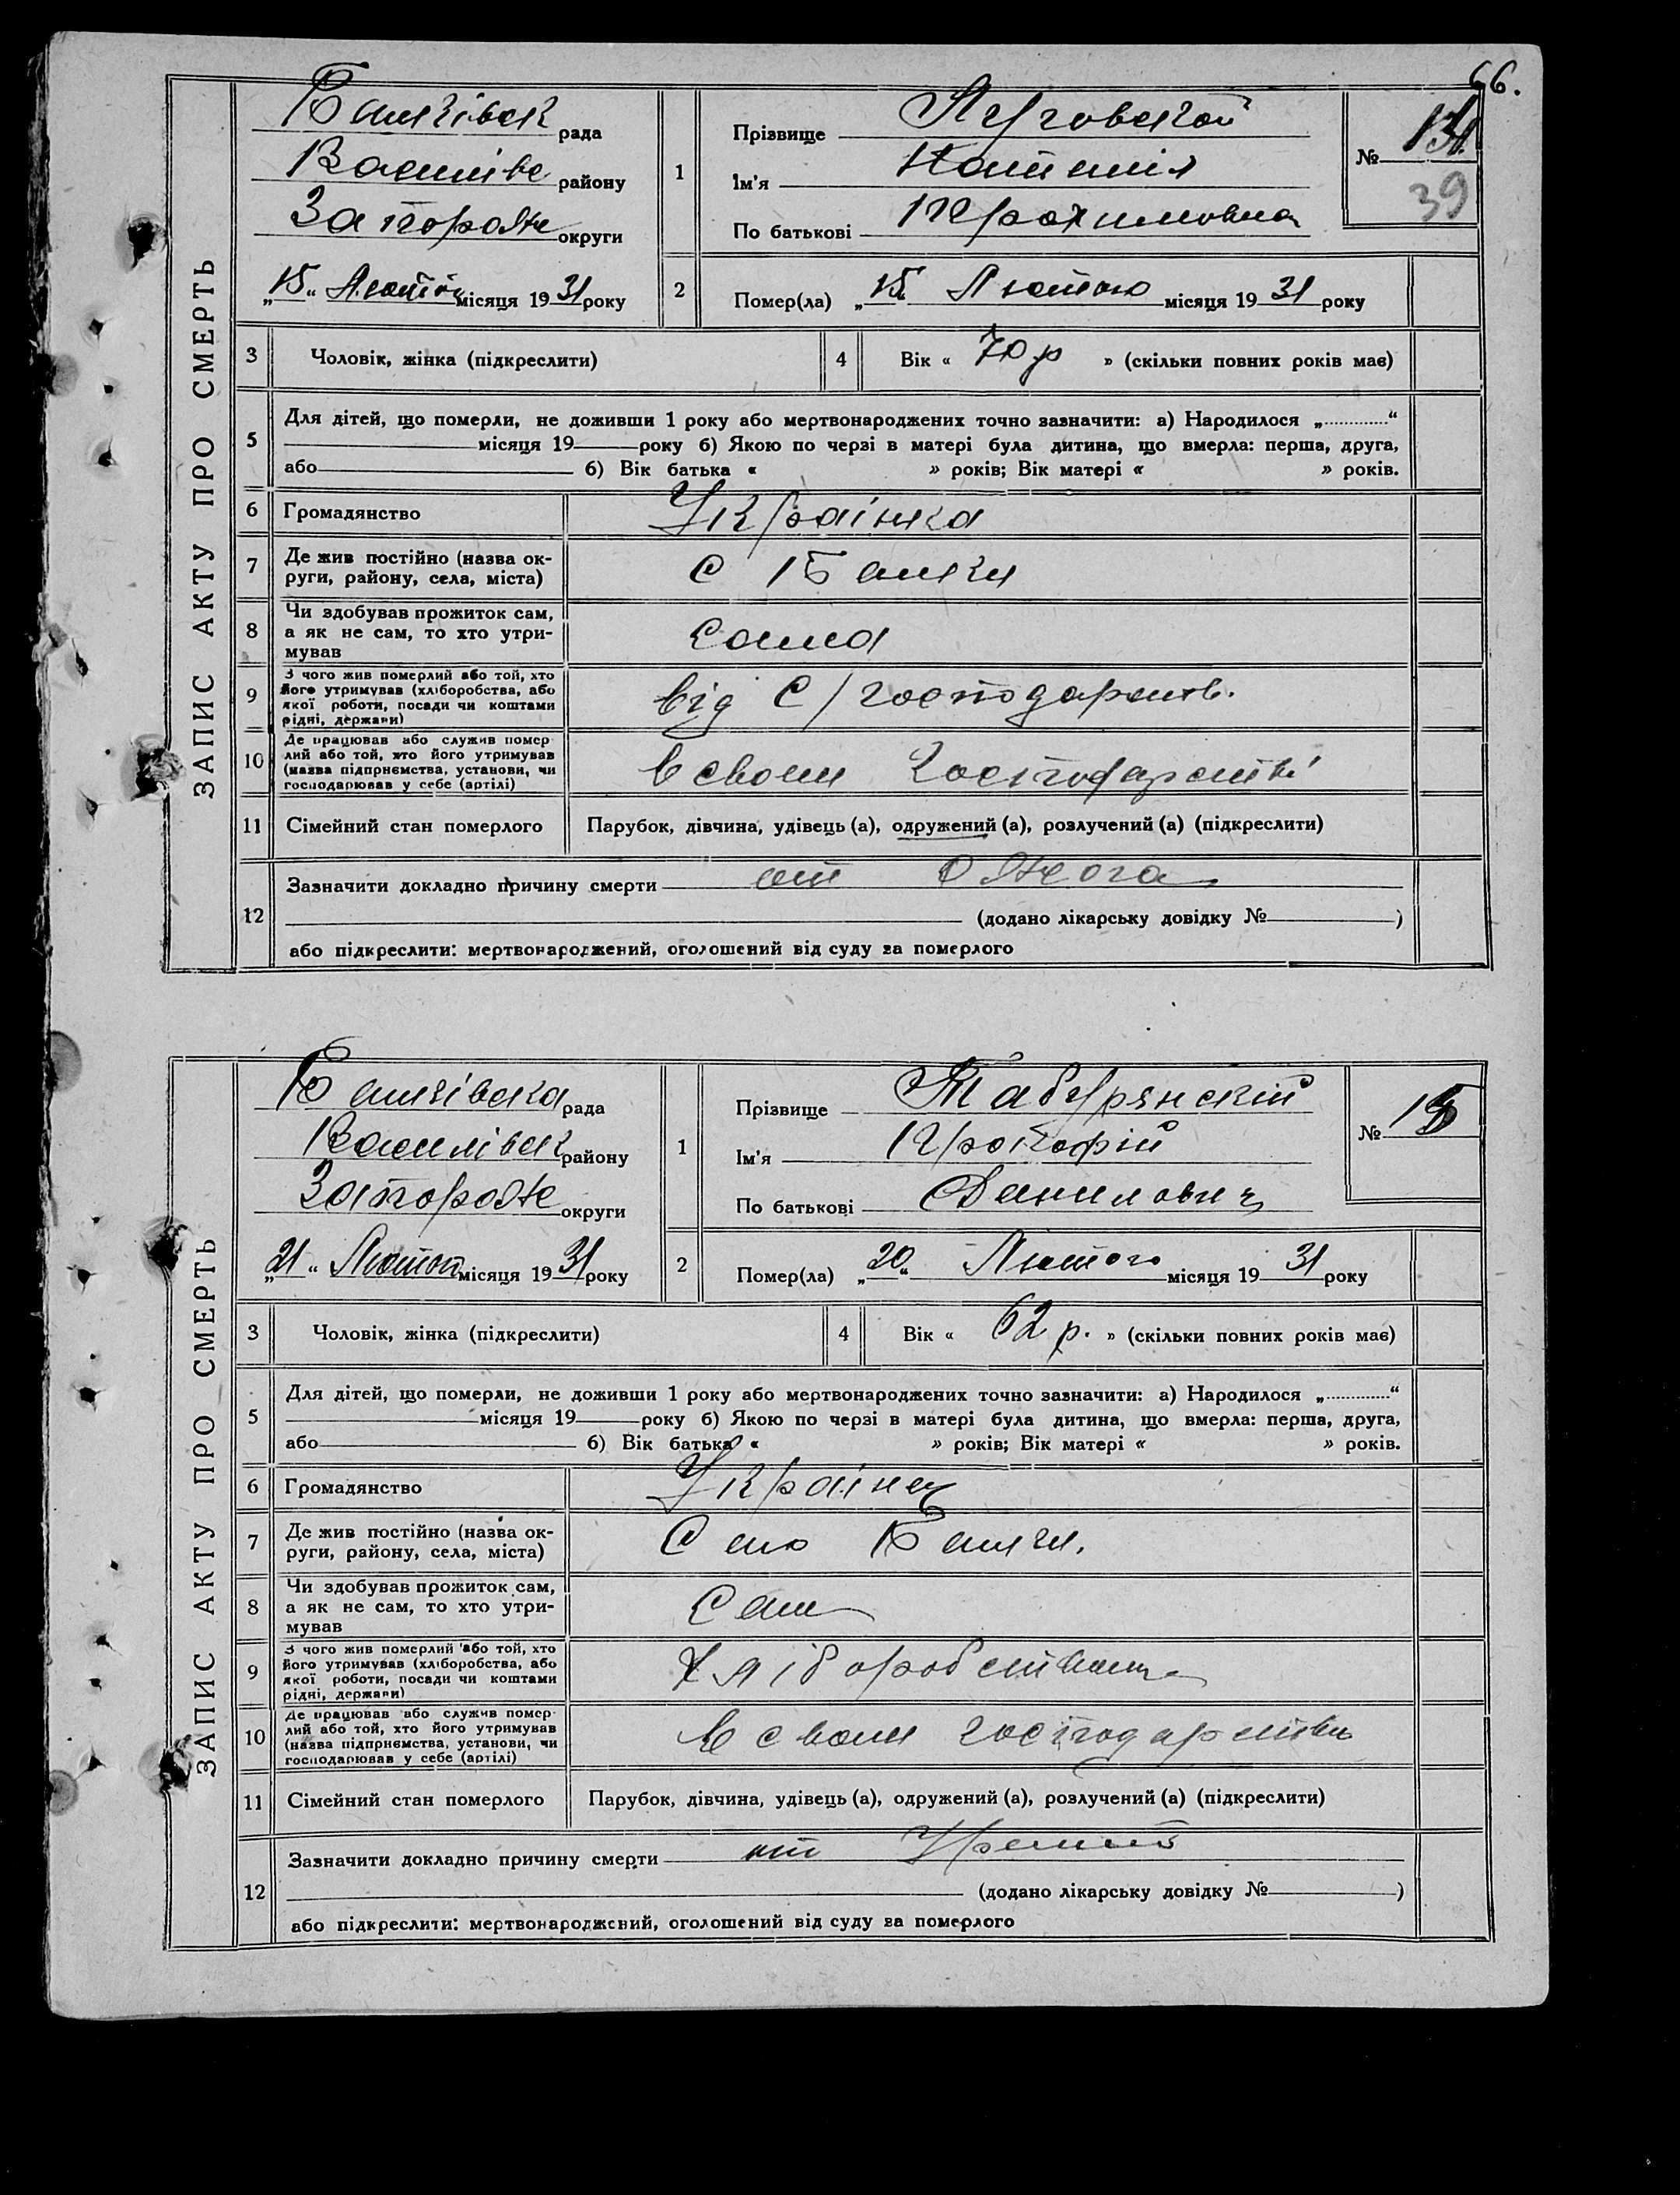 66.
ЗАПИС АКТУ ПРО СМЕРТЬ
Балківськ рада
Василівс району
Запорож округи
„15“ Лютого місяця 1931 року
1
Прізвище
Ім'я Наталія
По батькові Прохимовна
№ 14
39
2
Помер(ла) „15“ Лютого місяця 1931 року
3 Чоловік, жінка (підкреслити)
4 Вік « 70 р » (скільки повних років має)
5
Для дітей, що померли, не доживши 1 року або мертвонароджених точно зазначити: а) Народилося „.............“
місяця 19 року б) Якою по черзі в матері була дитина, що вмерла: перша, друга,
або б) Вік батька « » років; Вік матері « » років.
6 Громадянство Українка
7 Де жив постійно (назва ок-
руги, району, села, міста) с Балки
8 Чи здобував прожиток сам,
а як не сам, то хто утри-
мував Сама
9 З чого жив померлий або той, хто
його утримував (хліборобства, або
якої роботи, посади чи коштами
рідні, держави) від С/господарств.
10 Де працював або служив помер
лий або той, хто його утримував
(назва підприємства, установи, чи
господарював у себе (артілі) в своем господарстві
11 Сімейний стан померлого Парубок, дівчина, удівець (а), одружений (а), розлучений (а) (підкреслити)
12
Зазначити докладно причину смерти от ожога
(додано лікарську довідку № )
або підкреслити: мертвонароджений, оголошений від суду за померлого
ЗАПИС АКТУ ПРО СМЕРТЬ
Балківска рада
Василівск району
Запорож округи
„21“ Лютого місяця 1931 року
1
Прізвище Табурянский
Ім'я Прокофій
По батькові Данилович
№ 15
2
Помер(ла) „20“ Лютого місяця 1931 року
3 Чоловік, жінка (підкреслити)
4 Вік « 62 р. » (скільки повних років має)
5
Для дітей, що померли, не доживши 1 року або мертвонароджених точно зазначити: а) Народилося „.............“
місяця 19 року б) Якою по черзі в матері була дитина, що вмерла: перша, друга,
або б) Вік батька « » років; Вік матері « » років.
6 Громадянство Українец
7 Де жив постійно (назва ок-
руги, району, села, міста) Село Балки.
8 Чи здобував прожиток сам,
а як не сам, то хто утри-
мував Сам
9 З чого жив померлий або той, хто
його утримував (хліборобства, або
якої роботи, посади чи коштами
рідні, держави) Хліборобством
10 Де працював або служив помер
лий або той, хто його утримував
(назва підприємства, установи, чи
господарював у себе (артілі) В своем господарстви
11 Сімейний стан померлого Парубок, дівчина, удівець (а), одружений (а), розлучений (а) (підкреслити)
12
Зазначити докладно причину смерти от
(додано лікарську довідку № )
або підкреслити: мертвонароджений, оголошений від суду за померлого